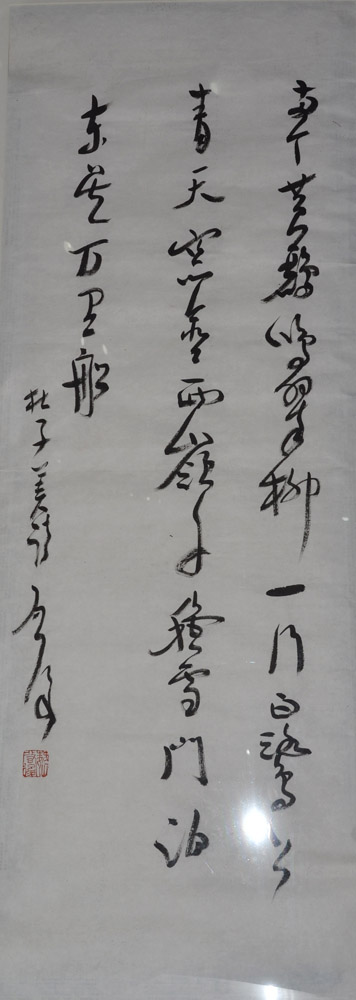 两个黄鹂鸣翠柳一行白鹭上
青天窓含西嶺千秋雪門泊
东吴万里船
杜子美诗